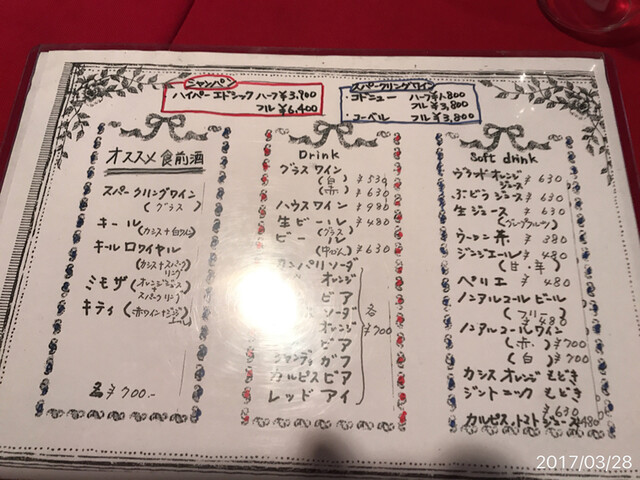 シャンパン
ハイパーエドシック ハーフ ¥3,900
フル ¥6,400
スパークリングワイン
・コドニュー ハーフ ¥1,800
フル ¥3,800
・コーベル フル ¥3,800
オススメ食前酒
スパークリングワイン
(グラス)
キール
(カシス+白ワイン)
キールロワイヤル
(カシス+スパーク
リング)
ミモザ (オレンジジュース
スパークリング)
キティ (赤ワイン+ジンジャ
エール)
各 ¥700.-
Drink
グラスワイン
(白) ¥530
(赤) ¥630
ハウスワイン ¥980
生ビール ¥480
(グラス)
ビール
(中びん) ¥630
カンパリソーダ
オレンジ
ビア
ソーダ
オレンジ
ビア
シャンディ ガフ
カルピス ビア
レッド アイ
各 ¥700
Soft drink
ブラッドオレンジ
ジュース ¥630
ぶどうジュース ¥630
生ジュース ¥630
(グレープフルーツ)
ウーロン茶 ¥380
ジンジエール ¥480
(甘・辛)
ペリエ ¥480
ノンアルコールビール
(フリー)
¥480
ノンアルコールワイン
(赤) ¥700
(白) ¥700
カシスオレンジもどき
ジントニックもどき
¥630
カルピス、トマトジュース ¥480
2017/03/28